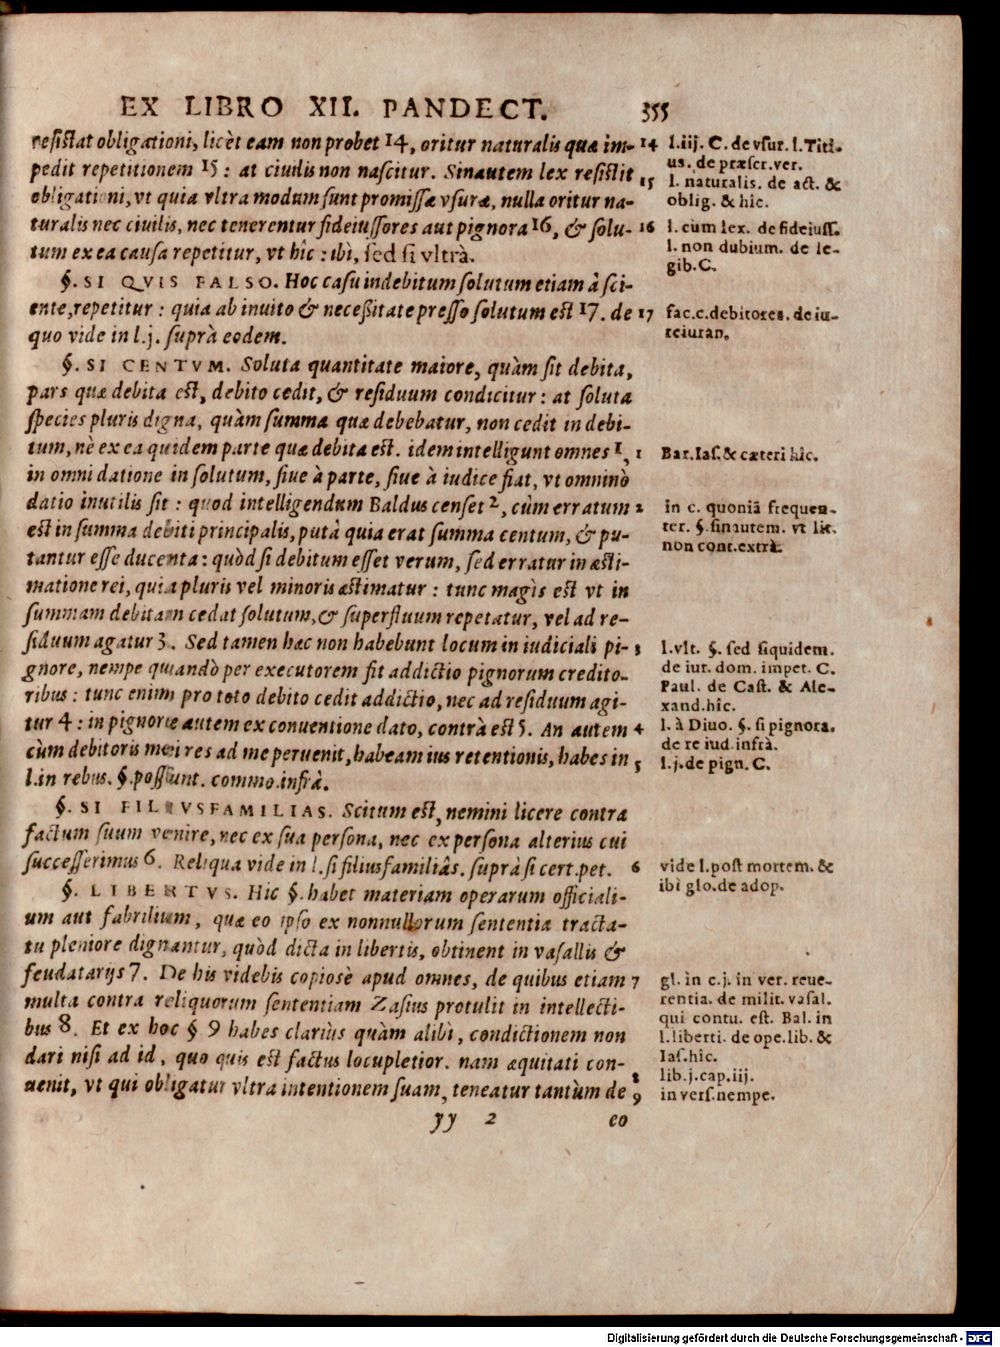 EX LIBRO XII. PANDECT. 355
resistat obligationi, licèt eam non probet 14, oritur naturalis quæ im-
pedit repetitionem 15 : at ciuilis non nascitur. Sinautem lex resistit
obligationi, vt quia vltra modum sunt promissæ vsuræ, nulla oritur na-
turalis nec ciuilis, nec tenerentur fideiussores aut pignora 16, & solu-
tum ex ea causa repetitur, vt hîc : ibi, sed si vltrà.
§. SI QVIS FALSO. Hoc casu indebitum solutum etiam à sci-
ente, repetitur : quia ab inuito & necessitate presso solutum est 17. de
quo vide in l.j. suprà eodem.
§. SI CENTVM. Soluta quantitate maiore, quàm sit debita,
pars quæ debita est, debito cedit, & residuum condicitur : at soluta
species pluris digna, quàm summa quæ debebatur, non cedit in debi-
tum, nè ex ea quidem parte quæ debita est. idem intelligunt omnes 1,
in omni datione in solutum, siue à parte, siue à iudice fiat, vt omninò
datio inutilis sit : quod intelligendum Baldus censet 2, cùm erratum
est in summa debiti principalis, putà quia erat summa centum, & pu-
tantur esse ducenta : quòd si debitum esset verum, sed erratur in æsti-
matione rei, quia pluris vel minoris æstimatur : tunc magìs est vt in
summam debitam cedat solutum, & superfluum repetatur, vel ad re-
siduum agatur 3. Sed tamen hæc non habebunt locum in iudiciali pi-
gnore, nempe quandò per executorem fit addictio pignorum credito-
ribus : tunc enim pro toto debito cedit addictio, nec ad residuum agi-
tur 4 : in pignore autem ex conuentione dato, contrà est 5. An autem
cùm debitoris mei res ad me peruenit, habeam ius retentionis, habes in
l. in rebus. §. possunt. commo. infrà.
§. SI FILIVSFAMILIAS. Scitum est, nemini licere contra
factum suum venire, nec ex sua persona, nec ex persona alterius cui
successerimus 6. Reliqua vide in l. si filiusfamiliâs. suprà si cert. pet.
§. LIBERTVS. Hic §. habet materiam operarum officiali-
um aut fabrilium, quæ eo ipso ex nonnullorum sententia tracta-
tu pleniore dignantur, quòd dicta in libertis, obtinent in vasallis &
feudatarijs 7. De his videbis copiosè apud omnes, de quibus etiam
multa contra reliquorum sententiam Zasius protulit in intellecti-
bus 8. Et ex hoc § 9 habes clariùs quàm alibi, condictionem non
dari nisi ad id, quo quis est factus locupletior. nam æquitati con-
uenit, vt qui obligatur vltra intentionem suam, teneatur tantùm de
yy 2 eo
14 l.iij. C. de vsur. l. Titi-
us. de præscr. ver.
15 l. naturalis. de act. &
oblig. & hîc.
16 l. cùm lex. de fideiuss.
l. non dubium. de le-
gib. C.
17 fac. c. debitores. de iu-
reiuran.
1 Bar. Ias. & cæteri hîc.
2 in c. quoniã frequen-
ter. §. sinautem. vt lit.
non cont. extrà.
3 l. vlt. §. sed siquidem.
de iur. dom. impet. C.
Paul. de Cast. & Ale-
xand. hîc.
4 l. à Diuo. §. si pignora.
de re iud. infrà.
5 l.j. de pign. C.
6 vide l. post mortem. &
ibi glo. de adop.
7 gl. in c.j. in ver. reue-
rentia. de milit. vasal.
qui contu. est. Bal. in
l. liberti. de ope. lib. &
Ias. hîc.
8 lib. j. cap. iij.
9 in vers. nempe.
Digitalisierung gefördert durch die Deutsche Forschungsgemeinschaft - DFG